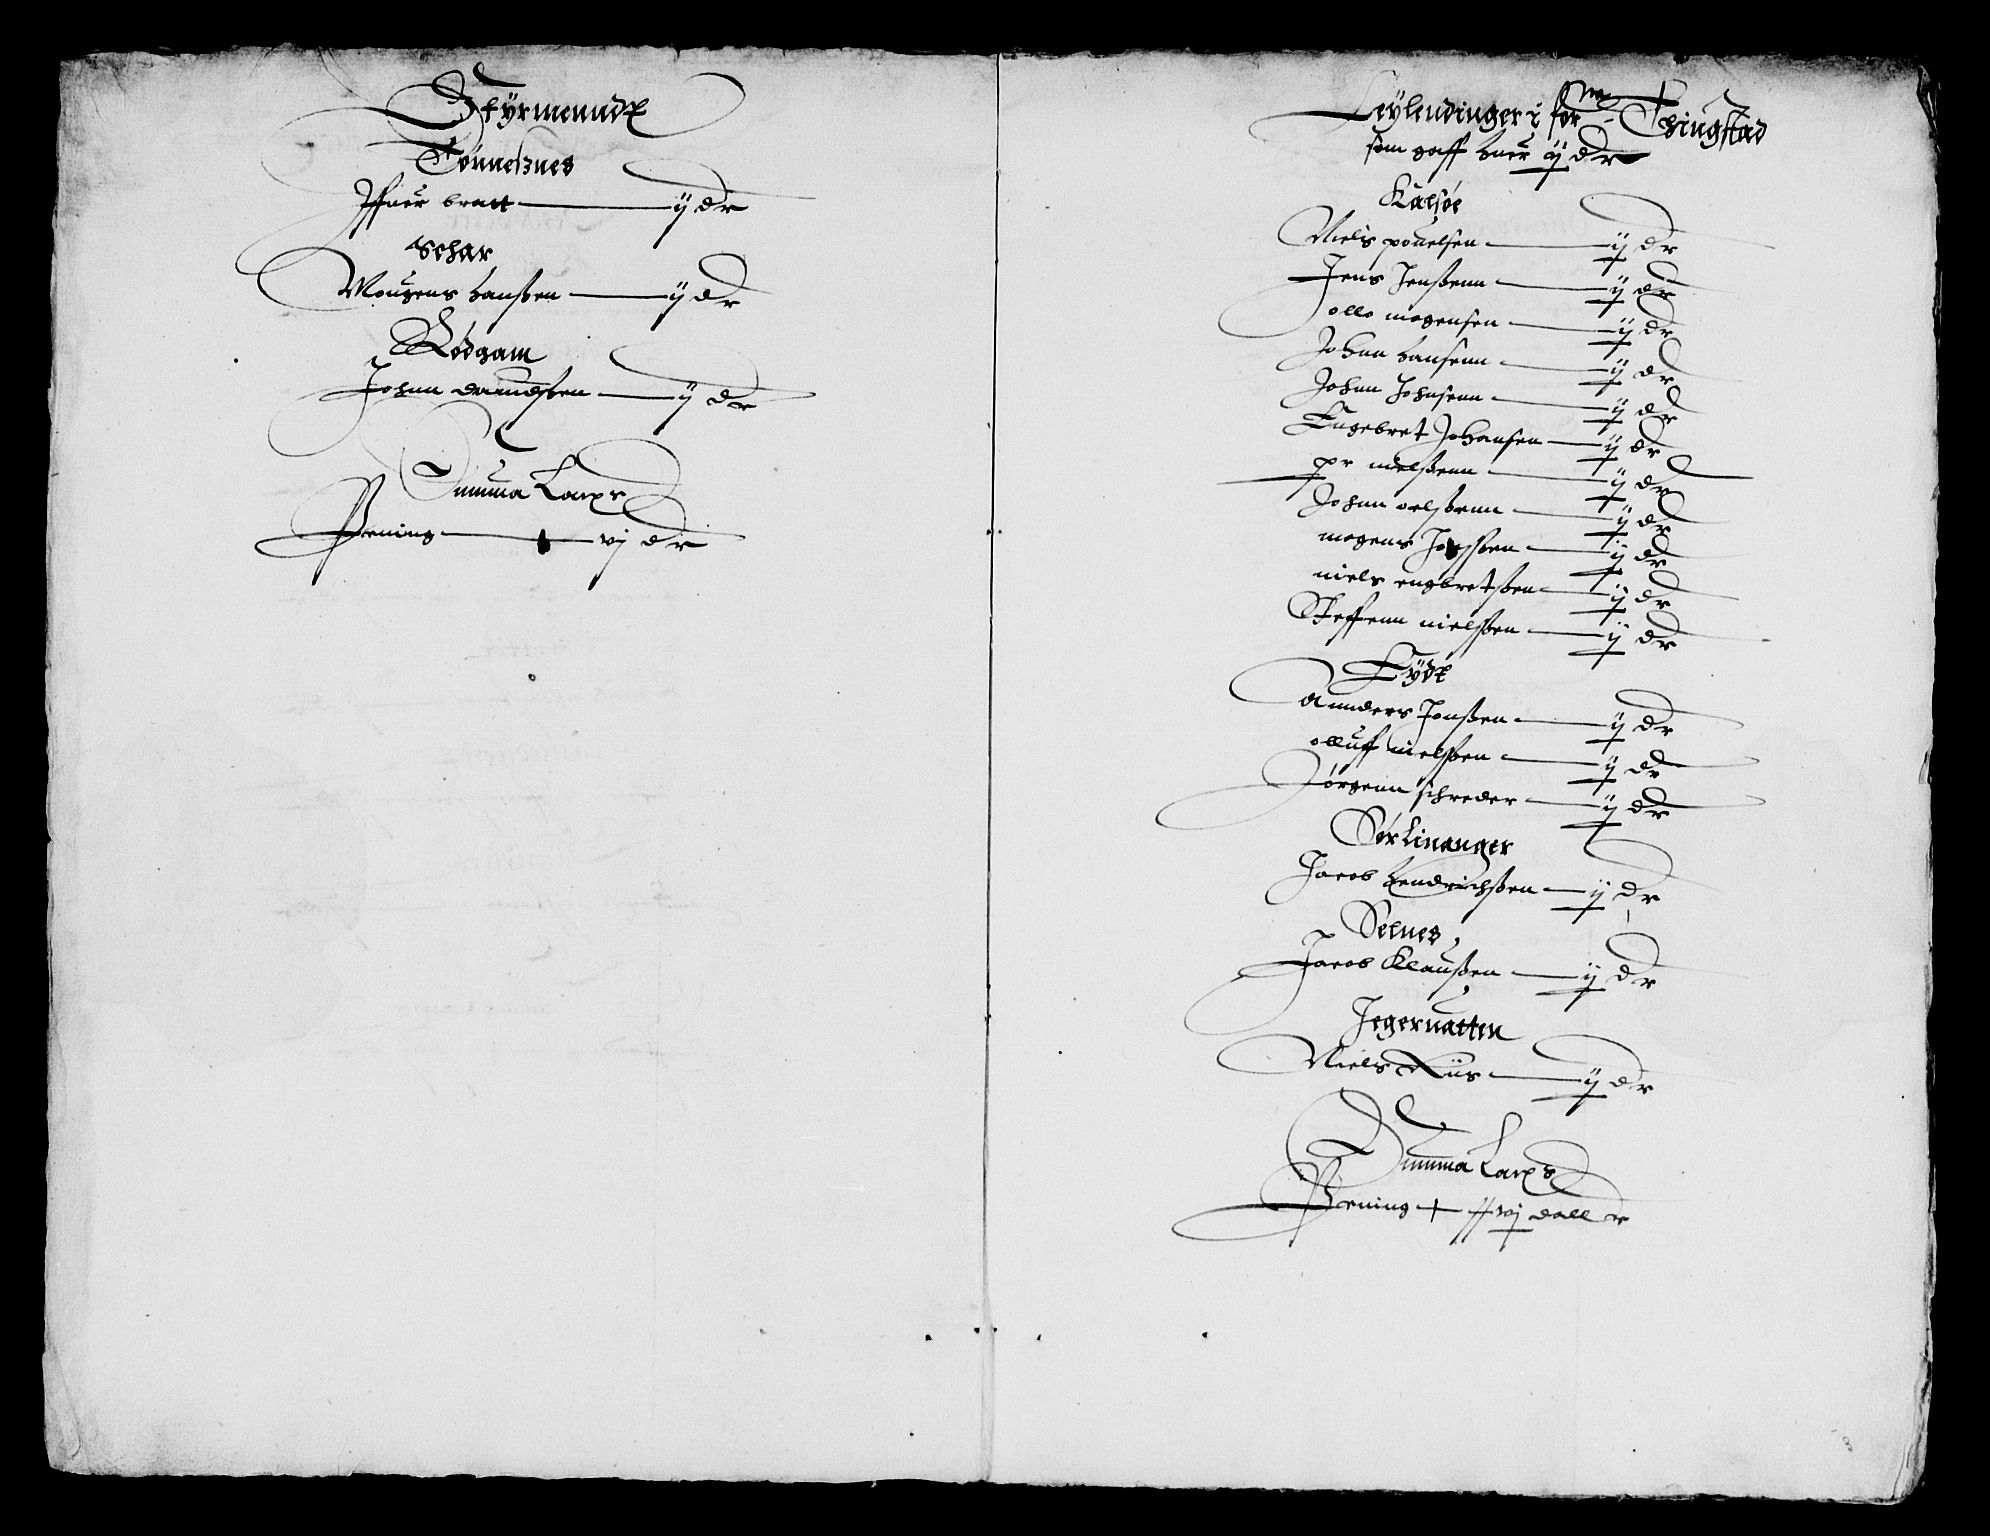 Styrmenndt
Tönnesznes
Iffuer bratt — ij dr
Schar
Mougens hanßen — ij dr
Rödgam
Johan dauidßen — ij dr
Summa Larps
Pening — vj dr
Leylendinger i forne Thingstad
som gaff huer ij dr
Kalsöe
Niels pouelsen — ij dr
Jens Jenßenn — ij dr
ollo mogensen — ij dr
Johan hansenn — ij dr
Johan Johnsenn — ij dr
Engebret Johansen — ij dr
pr nielßenn — ij dr
Johan oelßenn — ij dr
mogens Jonßen — ij dr
niels engbretßen — ij dr
Steffenn nielßen — ij dr
Eydt
Annders Jonßen — ij dr
olluff nielßen — ij dr
Jörgenn schreder — ij dr
Sörlinanger
Jacob hendrichßen — ij dr
Selnes
Jacob Klaußen — ij dr
Jegeruatten
Niels Riis — ij dr
Summa Larps
Pening — dall r